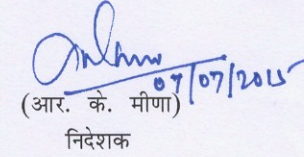 07/07/2015
(आर. के. मीणा)
निदेशक